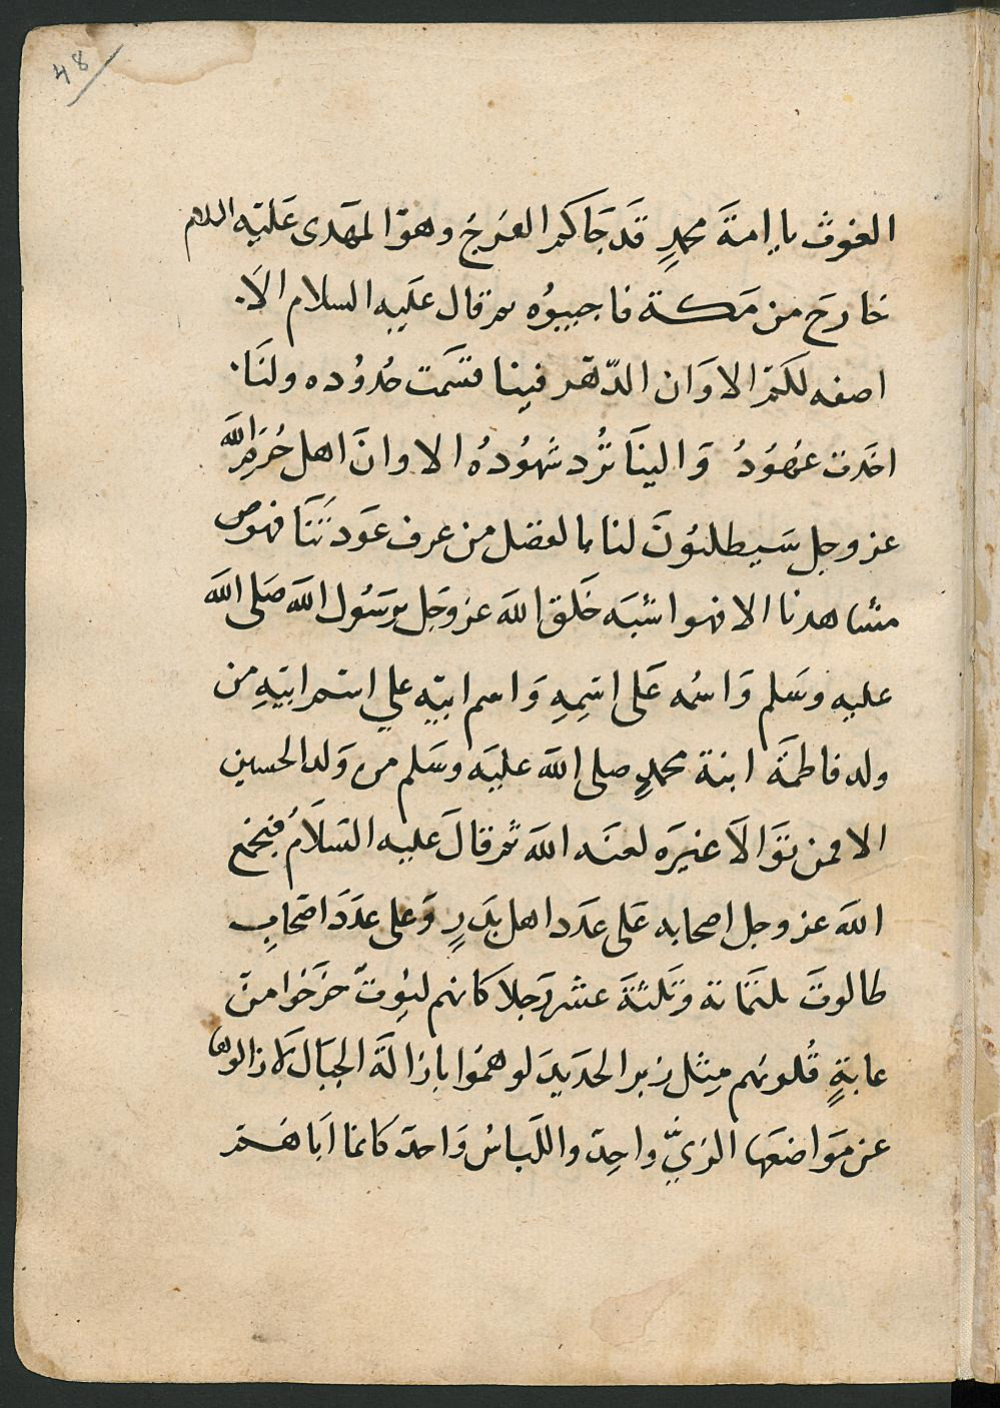 48
الغوث يا امة محمدٍ قد جَاكم الفرج وهوَ المهَدى عَليَه السلام
خارجَ من مَكة فاجيبوُه ثم قال عليه السلام الاَ
اصفه لكمَ الا وَان الدّهَر فينا قسَمت حُدوُده ولنَا
اخذت عهُودُ وَالينَا تُرد شهُودُهُ الا وانَ اهل حُرَم الله
عز وجل سَيطلبوُنَ لنا بالفضل من عرف عَودتنَا فهو
مشاهدنا الا فهو اشبَه خَلق الله عز وجَل برسَوُل الله صَلى الله
عليه وسَلم وَاسُمه عَلى اسِمِهِ وَاسم ابيَه علي اسَم ابيَهِ من
ولد فاطمَة ابنة محمدٍ صلى الله عليَه وسَلم من وَلد الحسين
الا فمن توَالاَ غيرَه لعنَه الله ثم قالَ عليه السَلاَمُ فيجمَع
الله عز وجل اصحابه عَلى عدَد اهل بدَرٍ وَعلى عدَدَ اصَحابِ
طالوتَ ثلثمَائة وَثلثةَ عشر رَجلا كانهم ليوُثّ خرَجُوا من
غابةٍ قُلوبهم مِثل زبر الحدَيدَ لو همَوُا بازالةَ الجبَال لاَزالوها
عن مَوَاضعَها الزيّ واحِدَ واللبَاسُ وَاحدَ كانما ابَاهَم